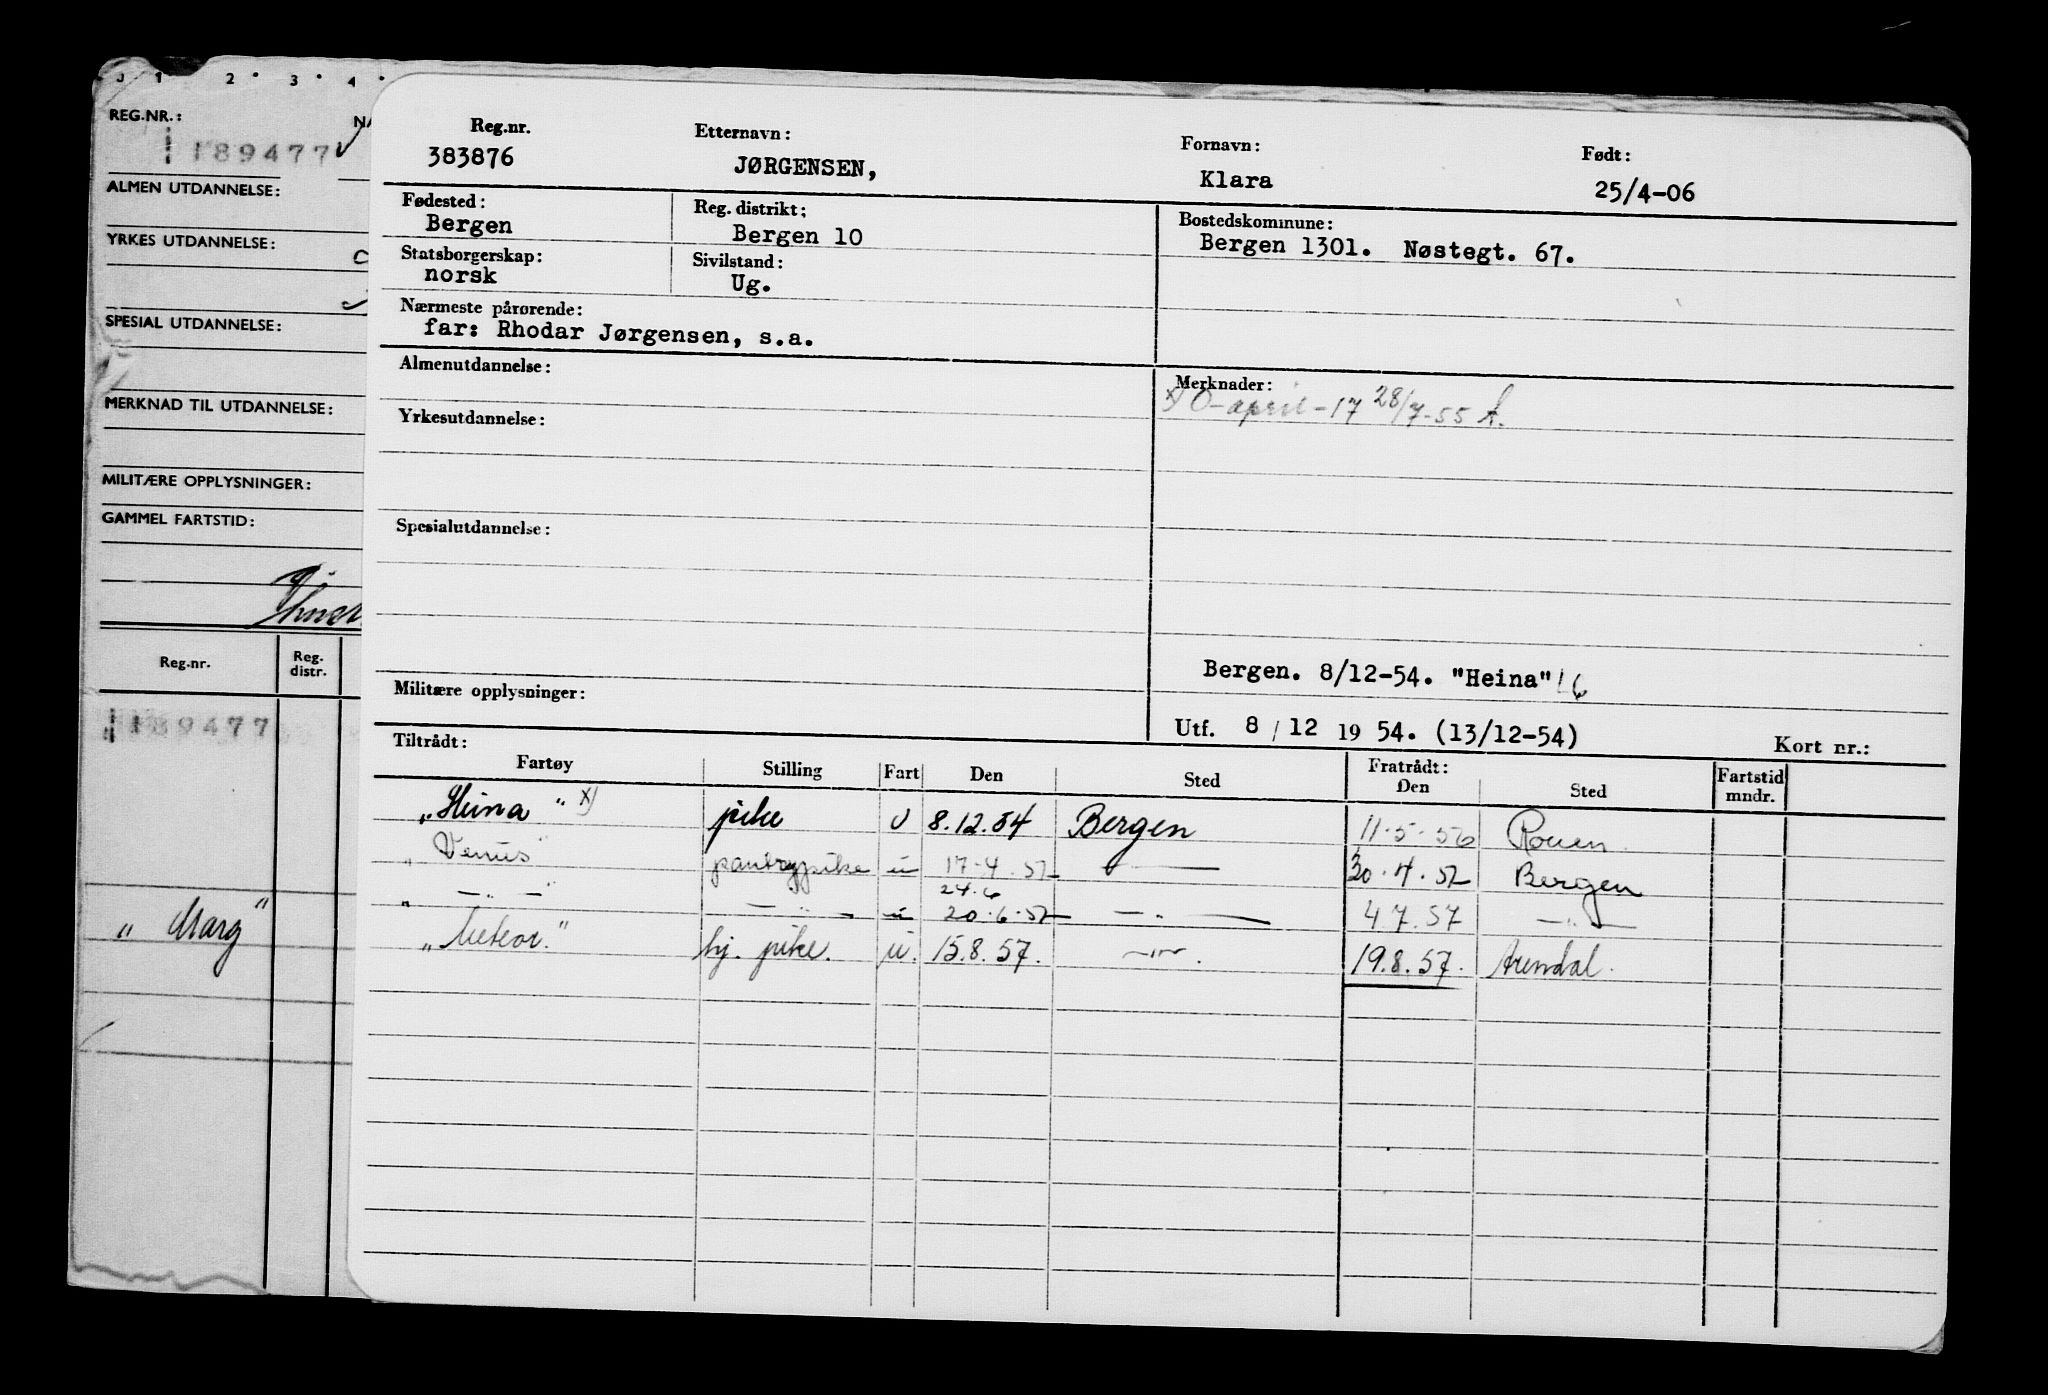 J 1 2 3 4
REG.NR.:
189477
ALMEN UTDANNELSE:
YRKES UTDANNELSE:
SPESIAL UTDANNELSE:
MERKNAD TIL UTDANNELSE:
MILITÆRE OPPLYSNINGER:
GAMMEL FARTSTID:
Reg.nr. Reg. distr.
189477
„ Marg "
Reg.nr. Etternavn: Fornavn: Født:
383876 JØRGENSEN, Klara 25/4-06
Fødested: Reg. distrikt: Bostedskommune:
Bergen Bergen 10 Bergen 1301. Nøstegt. 67.
Statsborgerskap: Sivilstand:
norsk Ug.
Nærmeste pårørende:
far: Rhodar Jørgensen, s.a.
Almenutdannelse: Merknader:
x) O-april-17 28/7-55 Å.
Yrkesutdannelse:
Spesialutdannelse:
Bergen. 8/12-54. "Heina"
Militære opplysninger:
Utf. 8 / 12 19 54. (13/12-54)
Tiltrådt: Kort nr.:
Fartøy Stilling Fart Den Sted Fratrådt: Den Sted Fartstid mndr.
„Heina" x) pike U 8.12.54 Bergen 11.5.56 Rouen
„Venus" pantrypike u 17.4.57 — " — 30.4.57 Bergen
24.6
„ — " — " — " — u 20.6.57 — " — 4.7.57 — " —
„Meteor." hj. pike. u. 15.8.57. — " —. 19.8.57. Arendal.